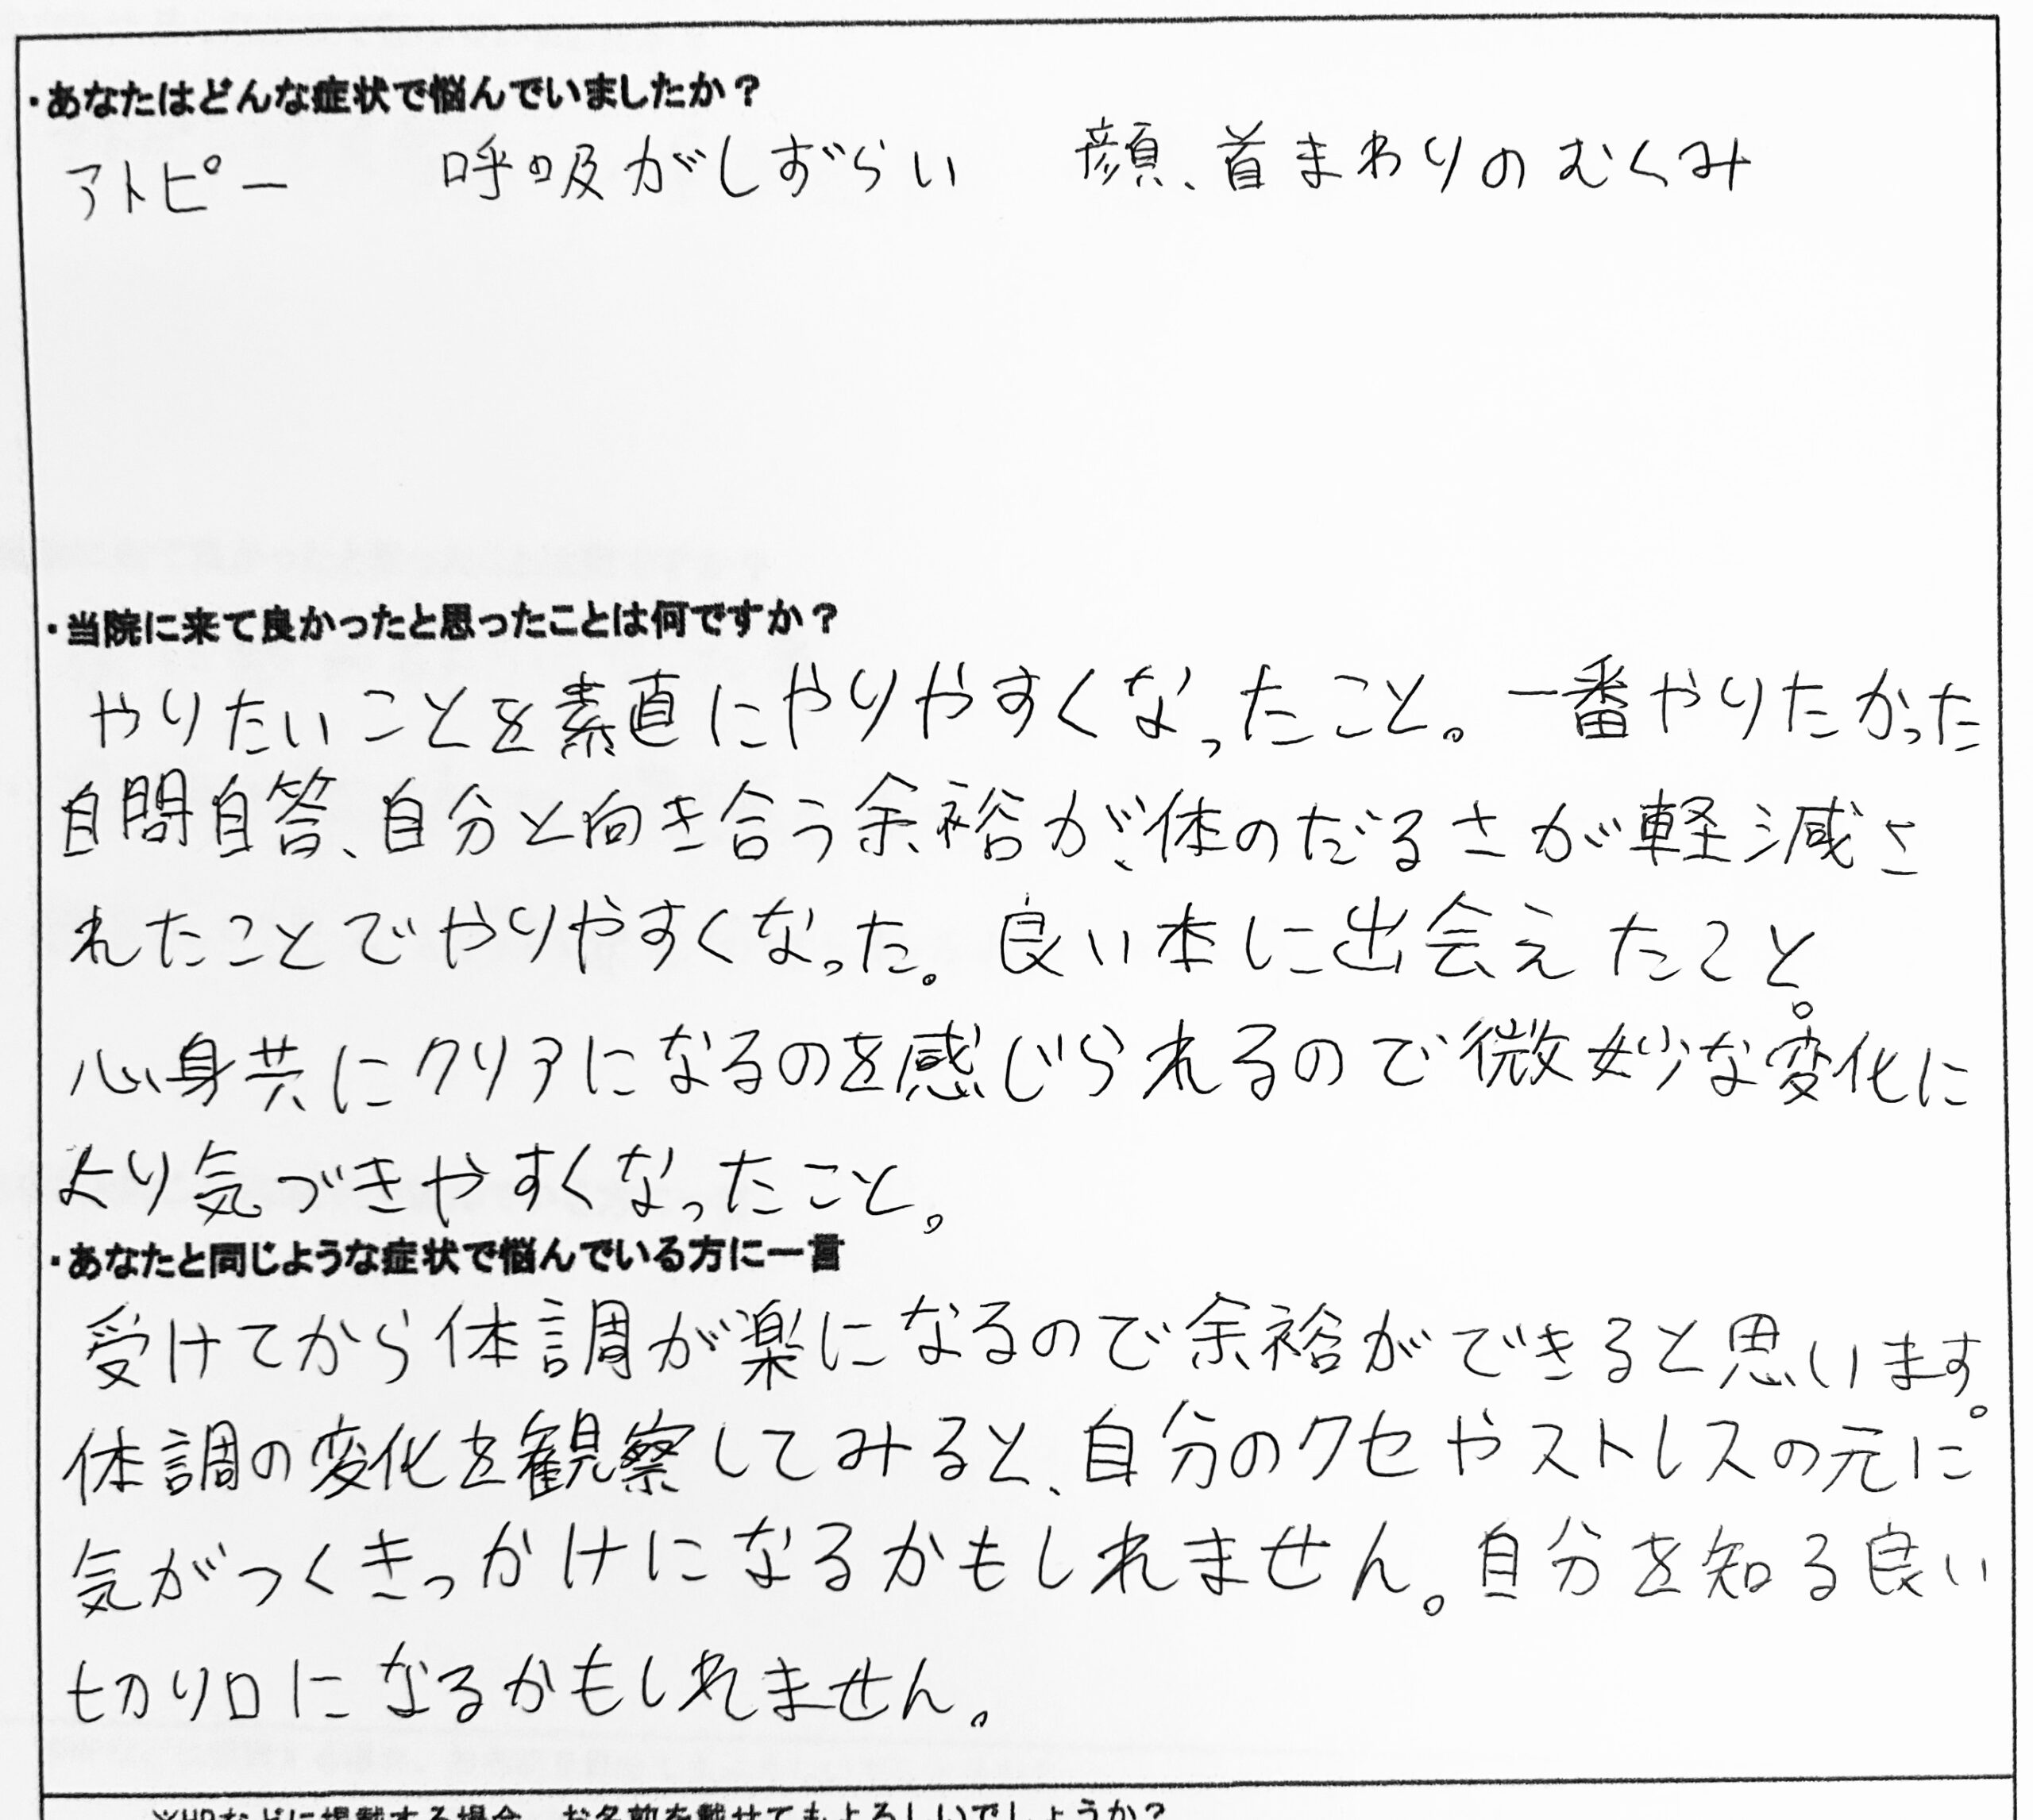 ・あなたはどんな症状で悩んでいましたか？
アトピー　呼吸がしずらい　顔、首まわりのむくみ
・当院に来て良かったと思ったことは何ですか？
やりたいことを素直にやりやすくなったこと。一番やりたかった
自問自答、自分と向き合う余裕が、体のだるさが軽減さ
れたことでやりやすくなった。良い本に出会えたこと。
心身共にクリアになるのを感じられるので微妙な変化に
より気づきやすくなったこと。
・あなたと同じような症状で悩んでいる方に一言
受けてから体調が楽になるので余裕ができると思います。
体調の変化を観察してみると、自分のクセやストレスの元に
気がつくきっかけになるかもしれません。自分を知る良い
切り口になるかもしれません。
※HPなどに掲載する場合、お名前を載せてもよろしいでしょうか？